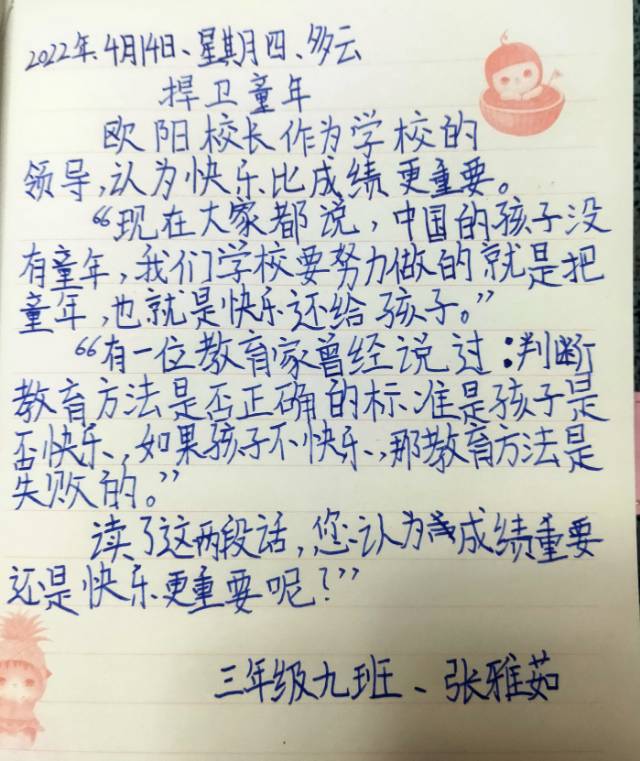 2022年.4月14日、星期四、多云
捍卫童年
欧阳校长作为学校的
领导,认为快乐比成绩更重要。
“现在大家都说,中国的孩子没
有童年,我们学校要努力做的就是把
童年,也就是快乐还给孩子。”
“有一位教育家曾经说过:判断
教育方法是否正确的标准是孩子是
否快乐,如果孩子不快乐,那教育方法是
失败的。”
读了这两段话,您认为成绩重要
还是快乐更重要呢?”
三年级九班、张雅茹